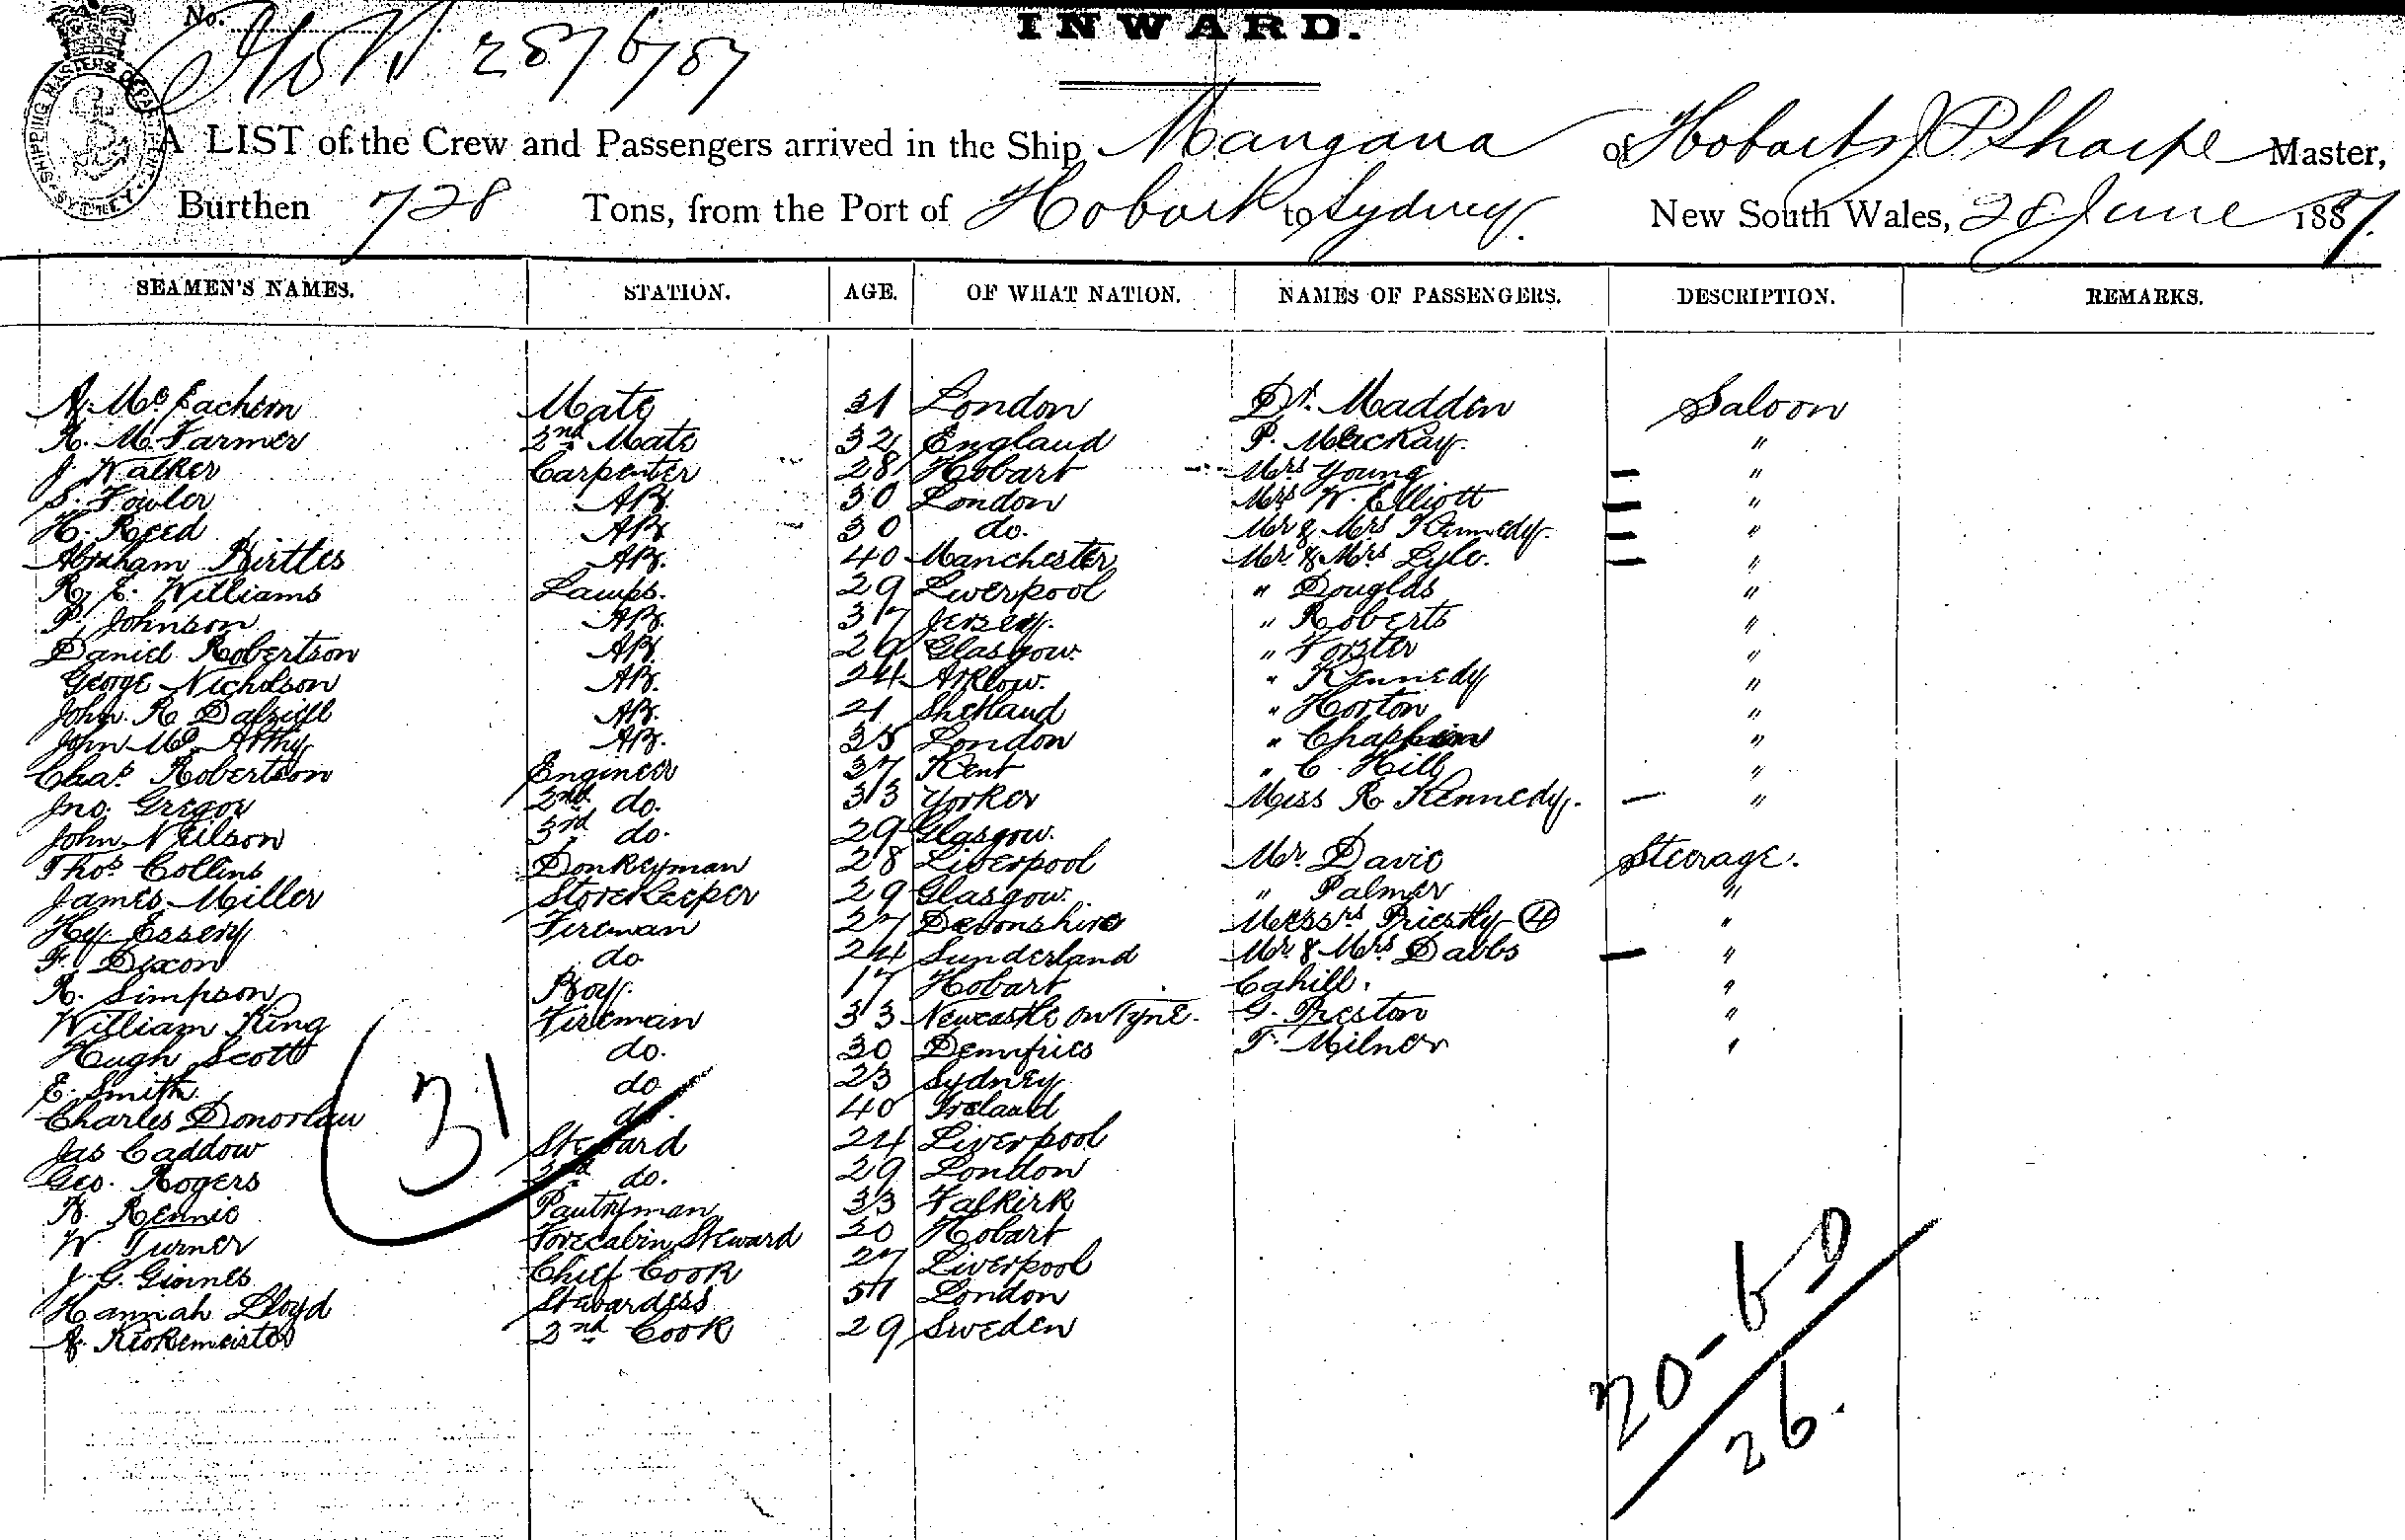 No.
INWARD.
28/6/87
SHIPPING MASTERS DEPARTMENT SYDNEY
A LIST of the Crew and Passengers arrived in the Ship Mangana of Hobart J P Sharpe Master,
Burthen 728 Tons, from the Port of Hobart to Sydney. New South Wales, 28 June 1887.
SEAMEN'S NAMES. STATION. AGE. OF WHAT NATION. NAMES OF PASSENGERS. DESCRIPTION. REMARKS.
A. McEachern Mate 31 London Dr. Madden Saloon
R. M. Farmer 2nd Mate 32 England P. Mackay. "
J. Walker Carpenter 28 Hobart Mrs Young "
S. Fowler AB. 30 London Mrs W. Elliott "
H. Reed AB 30 do. Mr & Mrs Kennedy. "
Abraham Birtles AB. 40 Manchester Mr. & Mrs Lyle. "
R. E. Williams Lamps. 29 Liverpool " Douglas "
P. Johnson AB. 37 Jersey. " Roberts "
Daniel Robertson AB 29 Glasgow. " Forster "
George Nicholson AB. 24 Arklow. " Kennedy "
John. R. Dalziell AB. 21 Shetland " Horton "
John Mc. Arthy AB. 35 London " Chaplin "
Chas. Robertson Engineer 37 Kent " C. Hill "
Jno. Gregor 2nd do. 33 Yorker Miss R. Kennedy. "
John Neilson 3rd do. 29 Glasgow.
Thos. Collins Donkeyman 28 Liverpool Mr. Davie Steerage.
James Miller Storekeeper 29 Glasgow. " Palmer "
Hy Essery Fireman 27 Devonshire Messrs Priestly 4 "
F. Dixon do 24 Sunderland Mr. & Mrs. Dabbs "
R. Simpson Boy. 17 Hobart Cahill. "
William King Fireman 33 Newcastle on Tyne. G. Preston "
Hugh Scott do. 30 Dumfries T. Milner "
E. Smith do 23 Sydney
Charles do. 40 Ireland
Jas Caddow Steward 24 Liverpool
Geo. Rogers 2nd do. 29 London
Rennie Pantryman 33 Falkirk
W. Turner Forecabin Steward 20 Hobart
J. G. Chief Cook 27 Liverpool
Hannah Lloyd Stewardess London
A. 2nd Cook 29 Sweden
31
20-6
26.